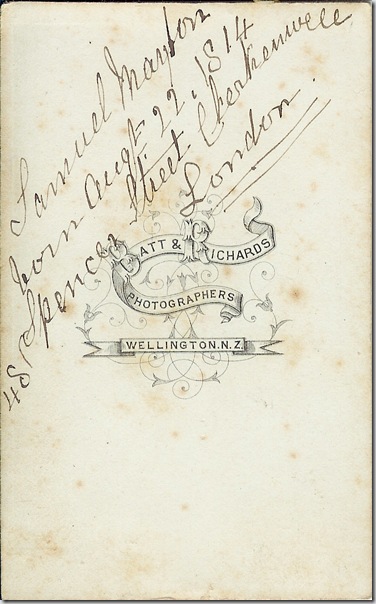 Samuel Maxton
born Augt 22, 1814
48, Spencer Street Clerkenwell
London.
Batt & Richards
PHOTOGRAPHERS
WELLINGTON. N.Z.